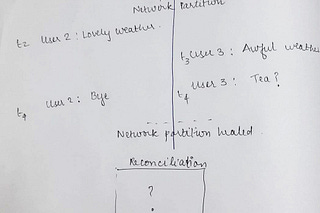 Network Partition
t2 User 2 : Lovely weather.
t3 User 3 : Awful weathe
t4 User 3 : Tea?
User 2 : Bye
Network partition healed.
Reconciliation
?